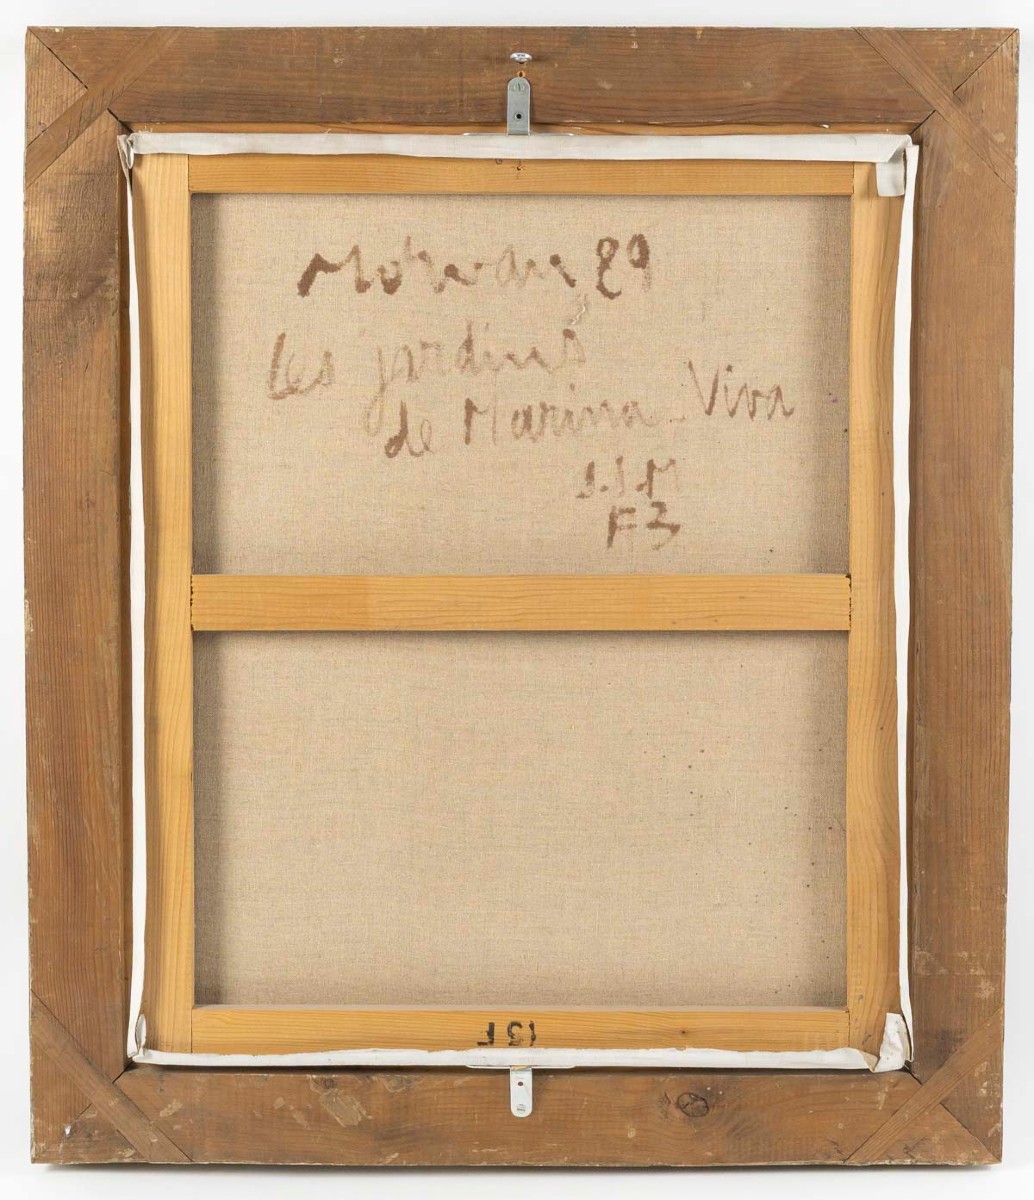 Morvan 89
Les jardins
de Marina-Viva
J.J.M
F3